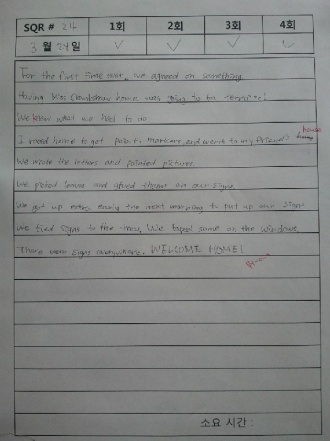 SQR # 214 1회 2회 3회 4회
3 월 29 일 ✓ ✓ ✓ ✓
For the first time ever, we agreed on something.
Having home was going to be terrific!
We know what we had to do
I raced home to get paint, markers, and went to my friend's house
We wrote the letters and painted pictures.
We picked leaves and glued them on our signs.
We got up extra early the next morning to put up our signs.
We tied signs to the trees, We taped some on the windows,
There were signs everywhere. WELCOME HOME!
소요 시간 :